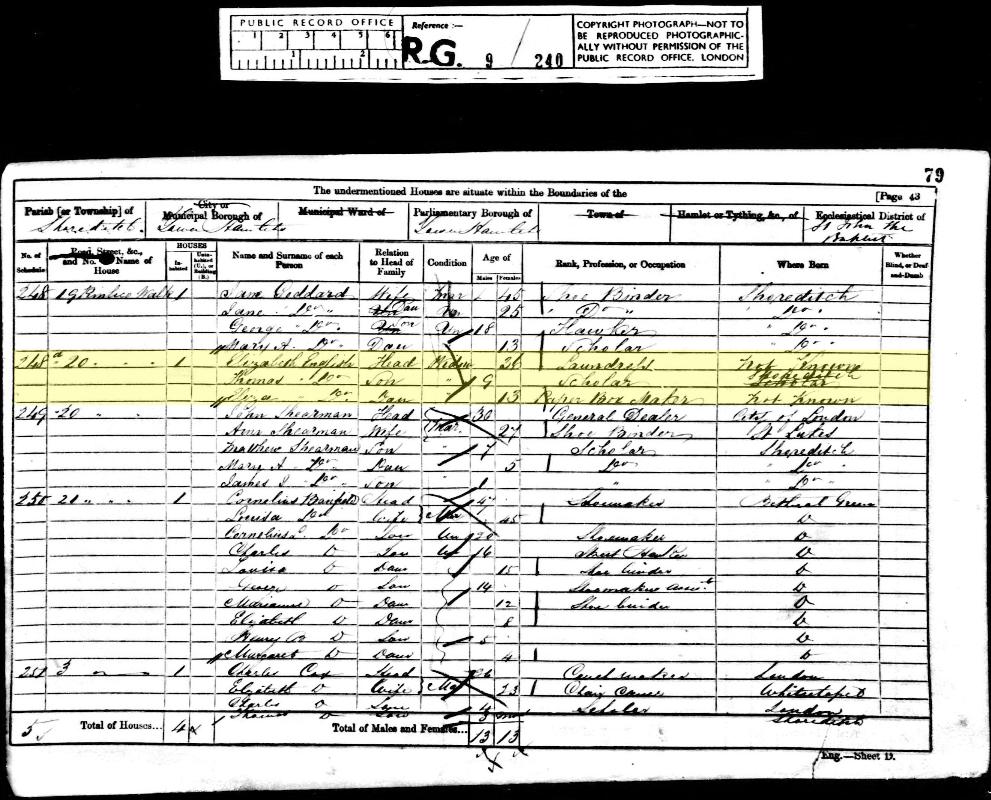 PUBLIC RECORD OFFICE
1 2 3 4 5 6
1 2
Reference :—
R.G. 9 / 240
COPYRIGHT PHOTOGRAPH—NOT TO
BE REPRODUCED PHOTOGRAPHIC-
ALLY WITHOUT PERMISSION OF THE
PUBLIC RECORD OFFICE, LONDON
79
The undermentioned Houses are situate within the Boundaries of the
[Page 43
Parish [or Township] of City or Municipal Borough of Municipal Ward of Parliamentary Borough of Town of Hamlet or Tything, &c., of Ecclesiastical District of
Shoreditch Tower Hamlets Tower Hamlets St John the Baptist
No. of Schedule Road, Street, &c., and No. or Name of House HOUSES Inhabited Uninhabited (U.), or Building (B.) Name and Surname of each Person Relation to Head of Family Condition Age of Males Females Rank, Profession, or Occupation Where Born Whether Blind, or Deaf-and-Dumb
248 19 Pimlico Walk 1 Jane Goddard Wife Mar 45 Shoe Binder Shoreditch
Jane Do Dau Un 25 Do Do
George Do Son Un 18 Hawker Do
Mary A. Do Dau 13 Scholar Do
248a 20 1 Elizabeth English Head Widow 36 Laundress Not Known
Thomas Do Son 9 Scholar Shoreditch Scholar
Eliza Do Dau 13 Paper Box Maker Not Known
249 20 John Shearman Head Mar. 30 General Dealer City of London
Ann Shearman Wife 27 Shoe Binder St Lukes
Matthew Shearman Son 7 Scholar Shoreditch
Mary A. Do Dau 5 Do Do
James J. Do Son 1 " Do
250 21 " " " 1 Cornelius Head 47 Shoemaker Bethnal Green
Louisa Do Wife Mar 45 D
Cornelius Do Son Un 20 Shoemaker D
Charles D Son Un 16 D
Louisa D Daur 15 Shoe binder D
George D Son 14 Shoemakers assist D
Marianne D Daur 12 Shoe binder D
Elizabeth D Daur 8 D
Henry D Son 5 D
Margaret D Daur 4 D
251 3 1 Charles Cox Head 26 London
Elizabeth D Wife Mar 23 Chair Caner Whitechapel
Charles D Son 4 Scholar London
Thomas D Son 3 mo Shoreditch
5 Total of Houses... 4 Total of Males and Females... 13 13
Eng.—Sheet D.